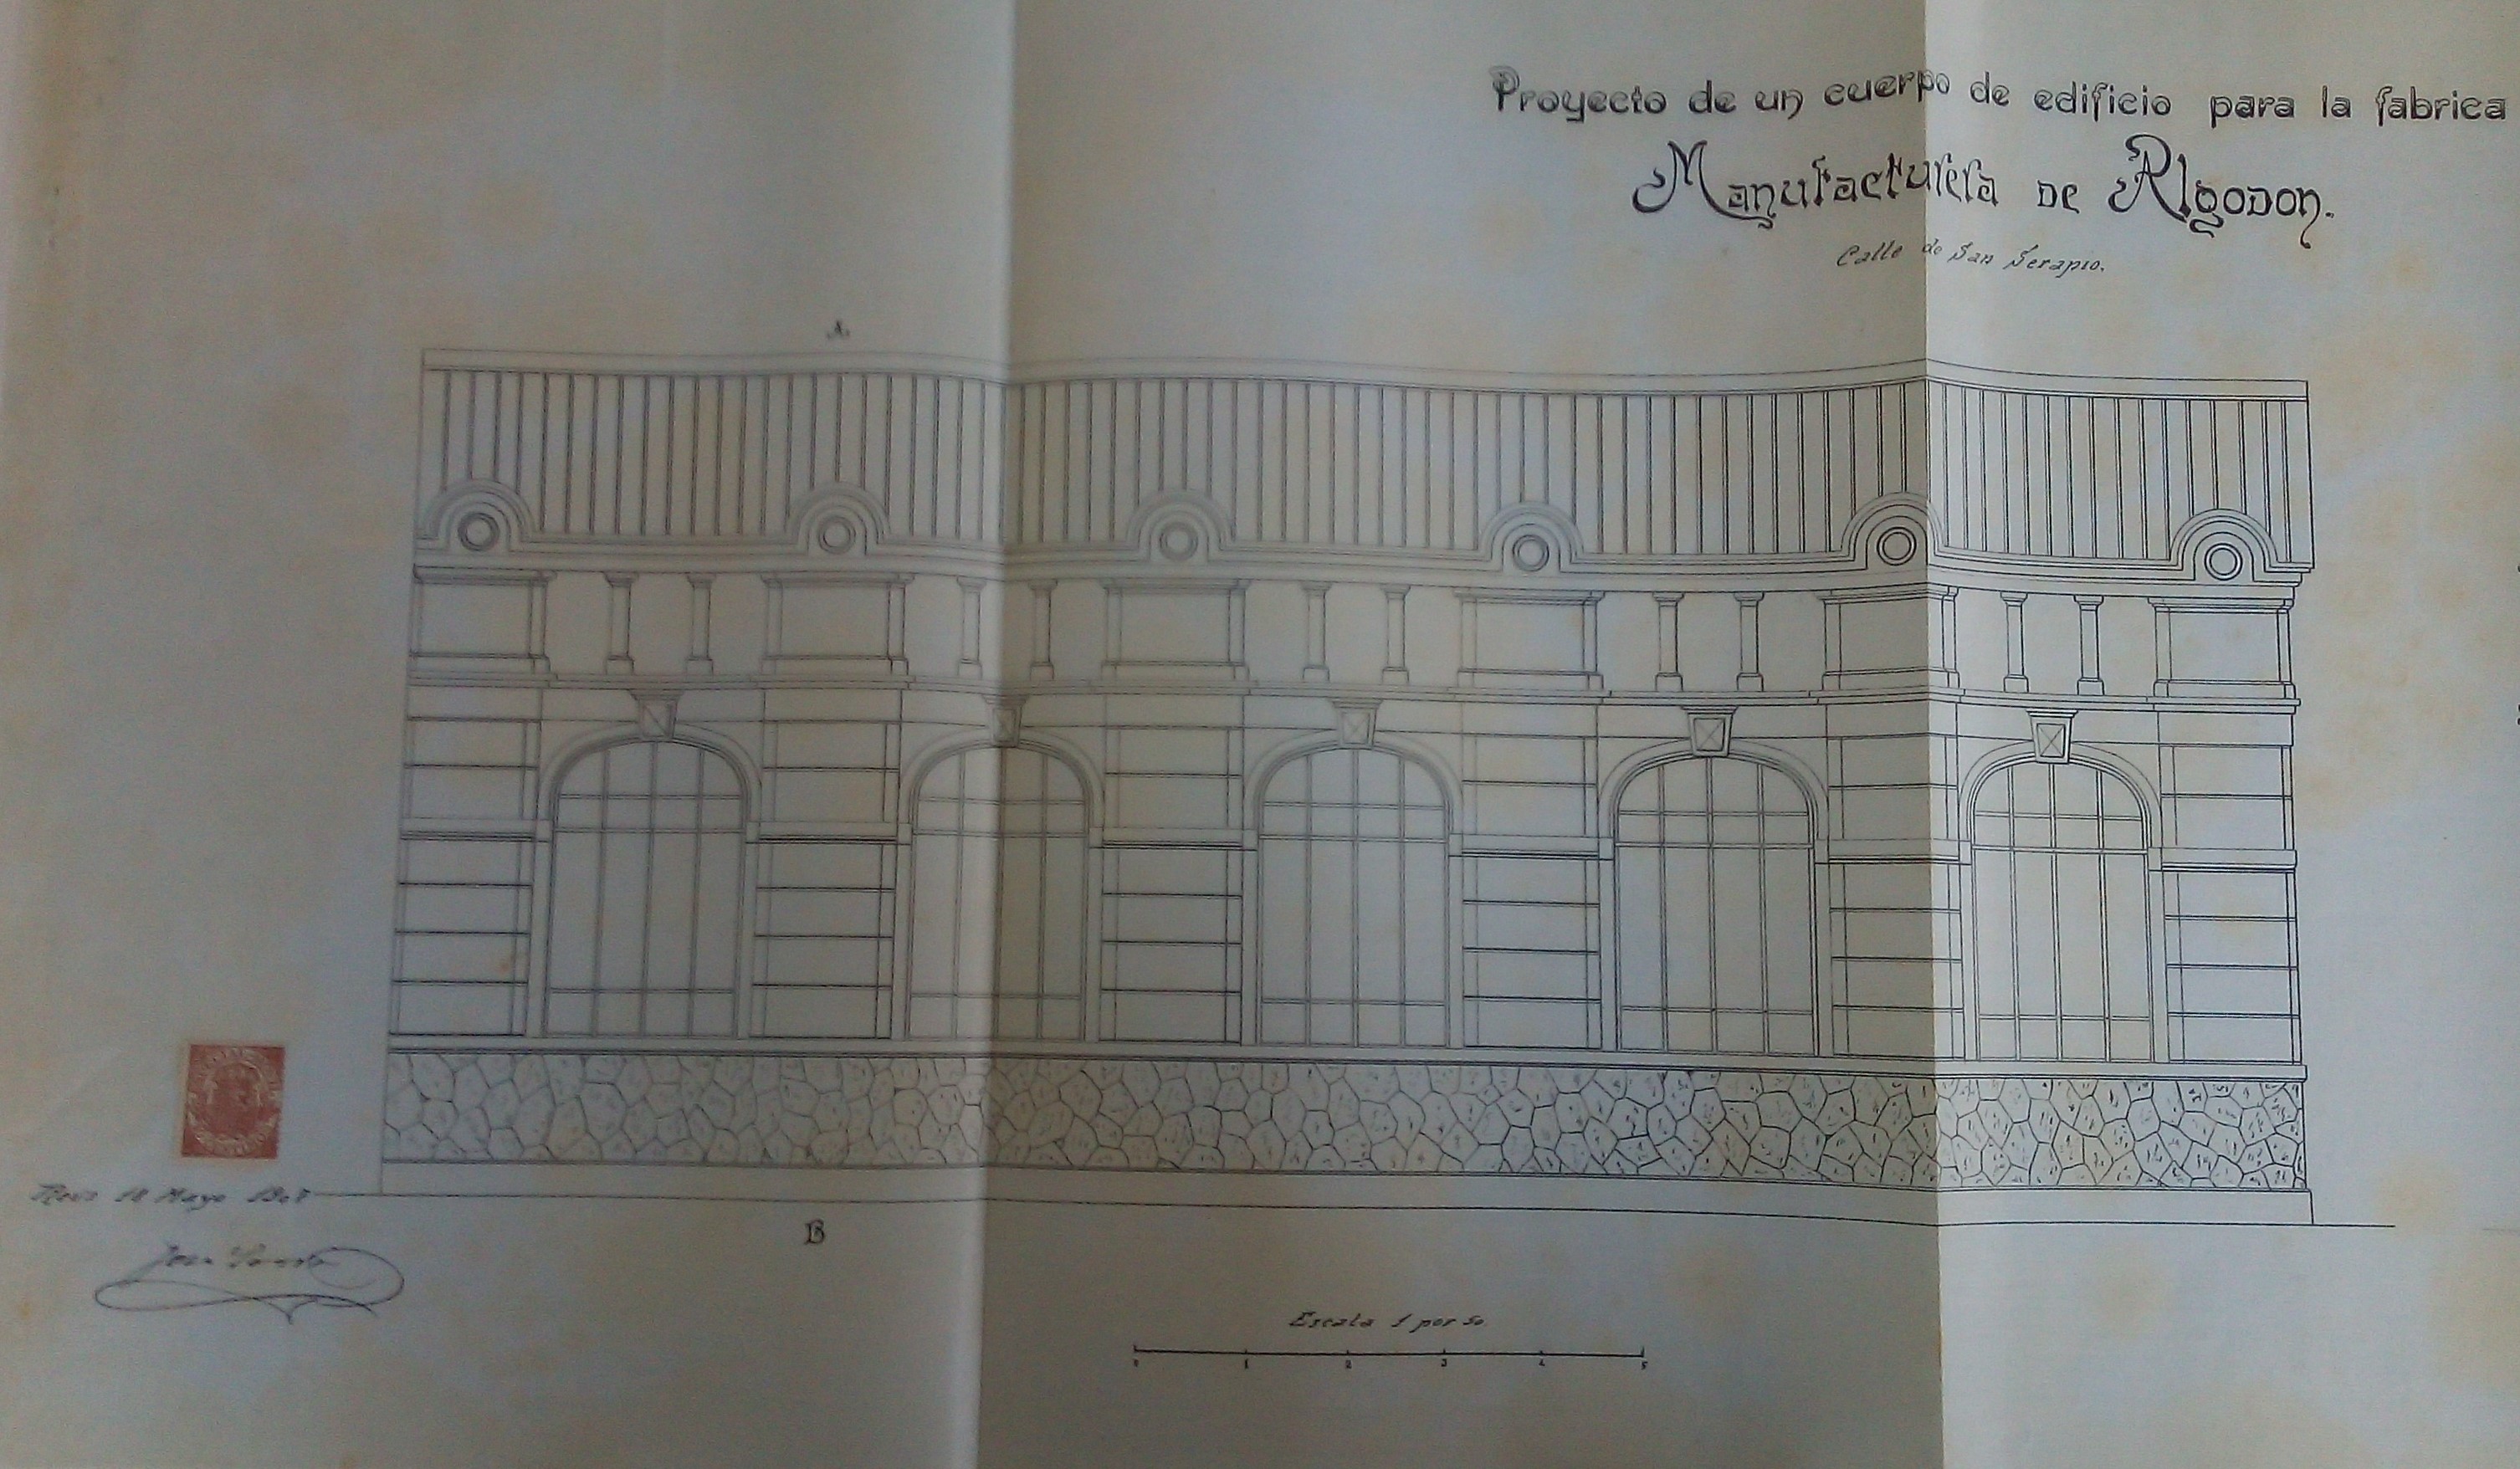 Proyecto de un cuerpo de edificio para la fabrica
Manufacturera de Algodon.
Calle de San Serapio.
A.
Reus 18 Mayo
B
Escala 1 por 50
0 1 2 3 4 5